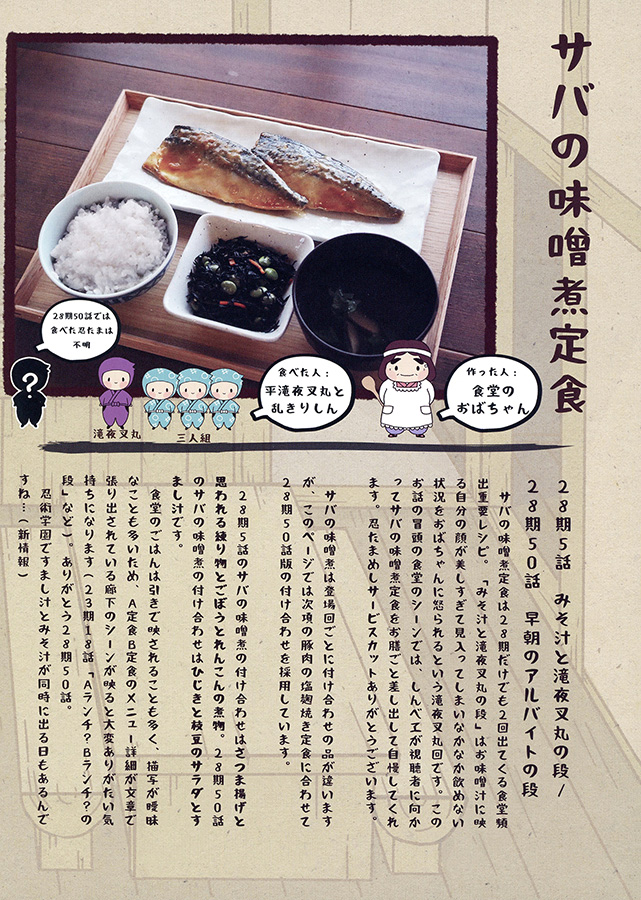 サバの味噌煮定食
作った人：
食堂の
おばちゃん
食べた人：
平滝夜叉丸と
乱きりしん
28期50話では
食べた忍たまは
不明
?
滝夜叉丸
三人組
28期5話　みそ汁と滝夜叉丸の段/
28期50話　早朝のアルバイトの段
サバの味噌煮定食は28期だけでも2回出てくる食堂頻
出重要レシピ。「みそ汁と滝夜叉丸の段」はお味噌汁に映
る自分の顔が美しすぎて見入ってしまいなかなか飲めない
状況をおばちゃんに怒られるという滝夜叉丸回です。この
お話の冒頭の食堂のシーンでは、しんべヱが視聴者に向か
ってサバの味噌煮定食をお膳ごと差し出して自慢してくれ
ます。忍たまめしサービスカットありがとうございます。
サバの味噌煮は登場回ごとに付け合わせの品が違います
が、このページでは次項の豚肉の塩麹焼き定食に合わせて
28期50話版の付け合わせを採用しています。
28期5話のサバの味噌煮の付け合わせはさつま揚げと
思われる練り物とごぼうとれんこんの煮物。28期50話
のサバの味噌煮の付け合わせはひじきと枝豆のサラダとす
まし汁です。
食堂のごはんは引きで映されることも多く、描写が曖昧
なことも多いため、A定食B定食のメニュー詳細が文章で
張り出されている廊下のシーンが映ると大変ありがたい気
持ちになります（23期18話「Aランチ？Bランチ？の
段」など）。ありがとう28期50話。
忍術学園ですまし汁とみそ汁が同時に出る日もあるんで
すね…（新情報）